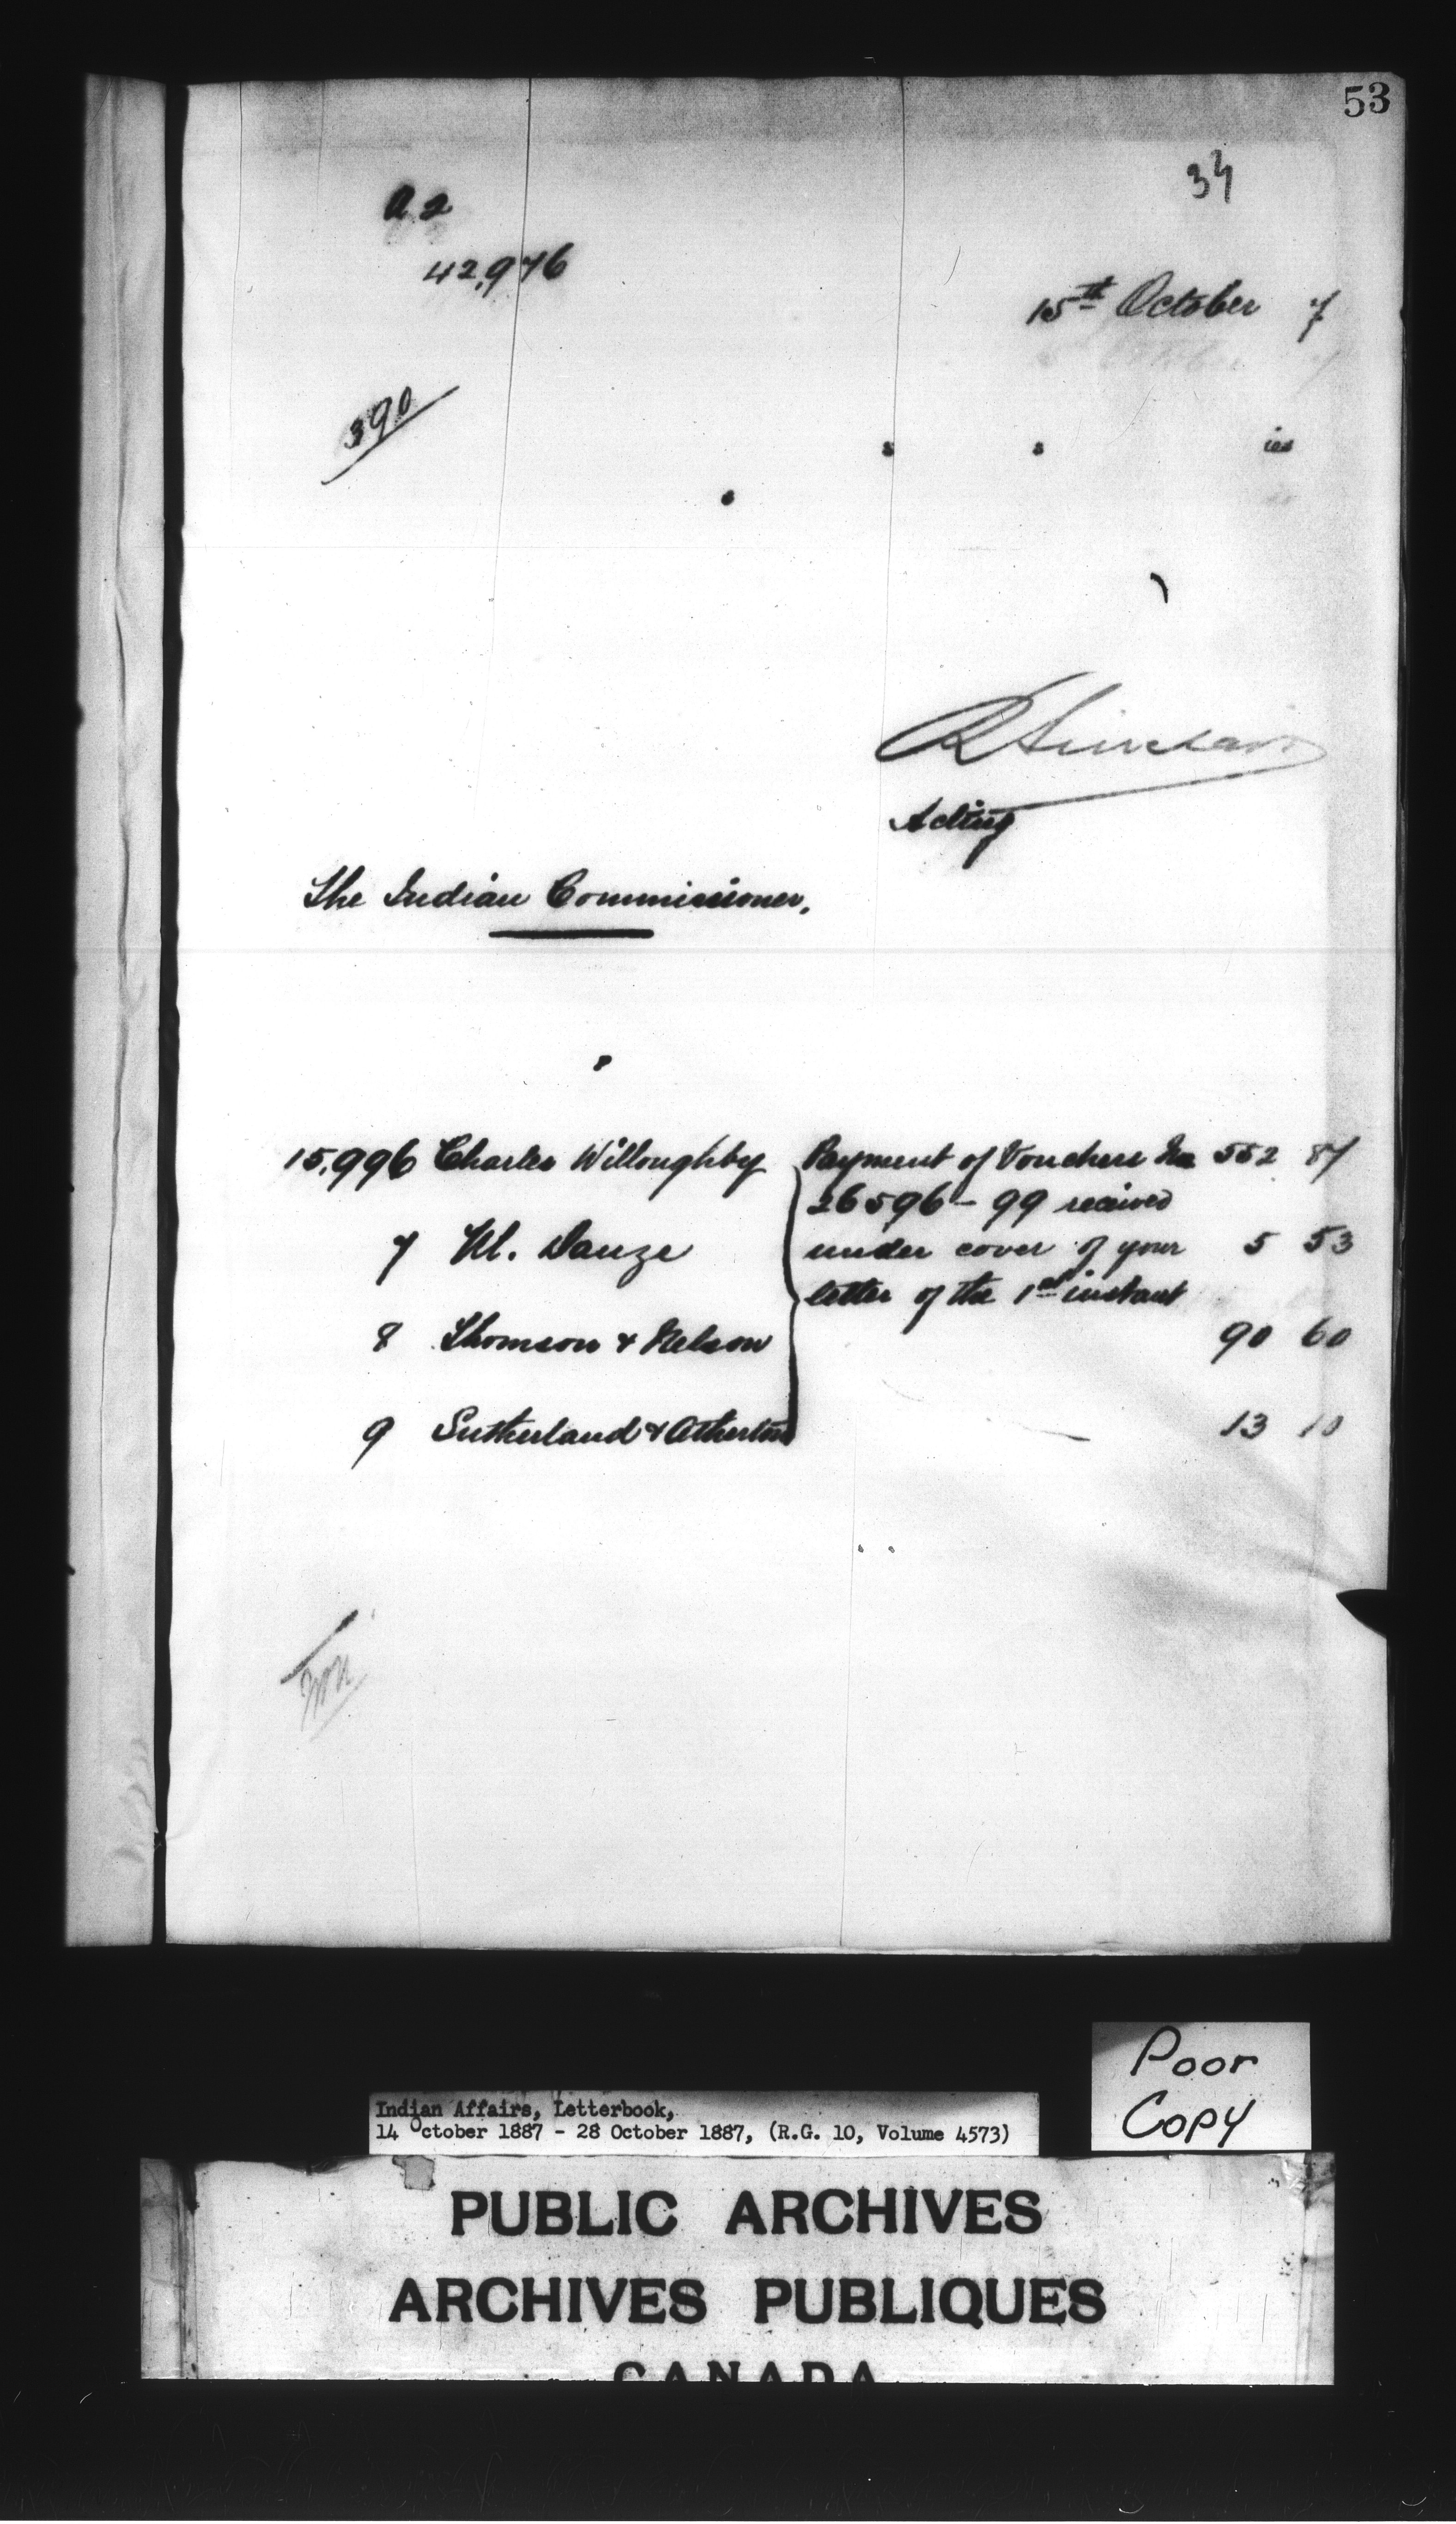 53
34
A 2
42,976
15th October 7
390
s s ies
R Sinclair
Acting
The Indian Commissioner.
15,996 Charles Willoughby Payment of Vouchers No 552 87
26596-99 received
7 Danze under cover of your 5 53
letter of the 1st instant
8 Thomson & Nelson 90 60
9 Sutherland & Atherton 13 10
Poor
Copy
Indian Affairs, Letterbook,
14 October 1887 - 28 October 1887, (R.G. 10, Volume 4573)
PUBLIC ARCHIVES
ARCHIVES PUBLIQUES
CANADA